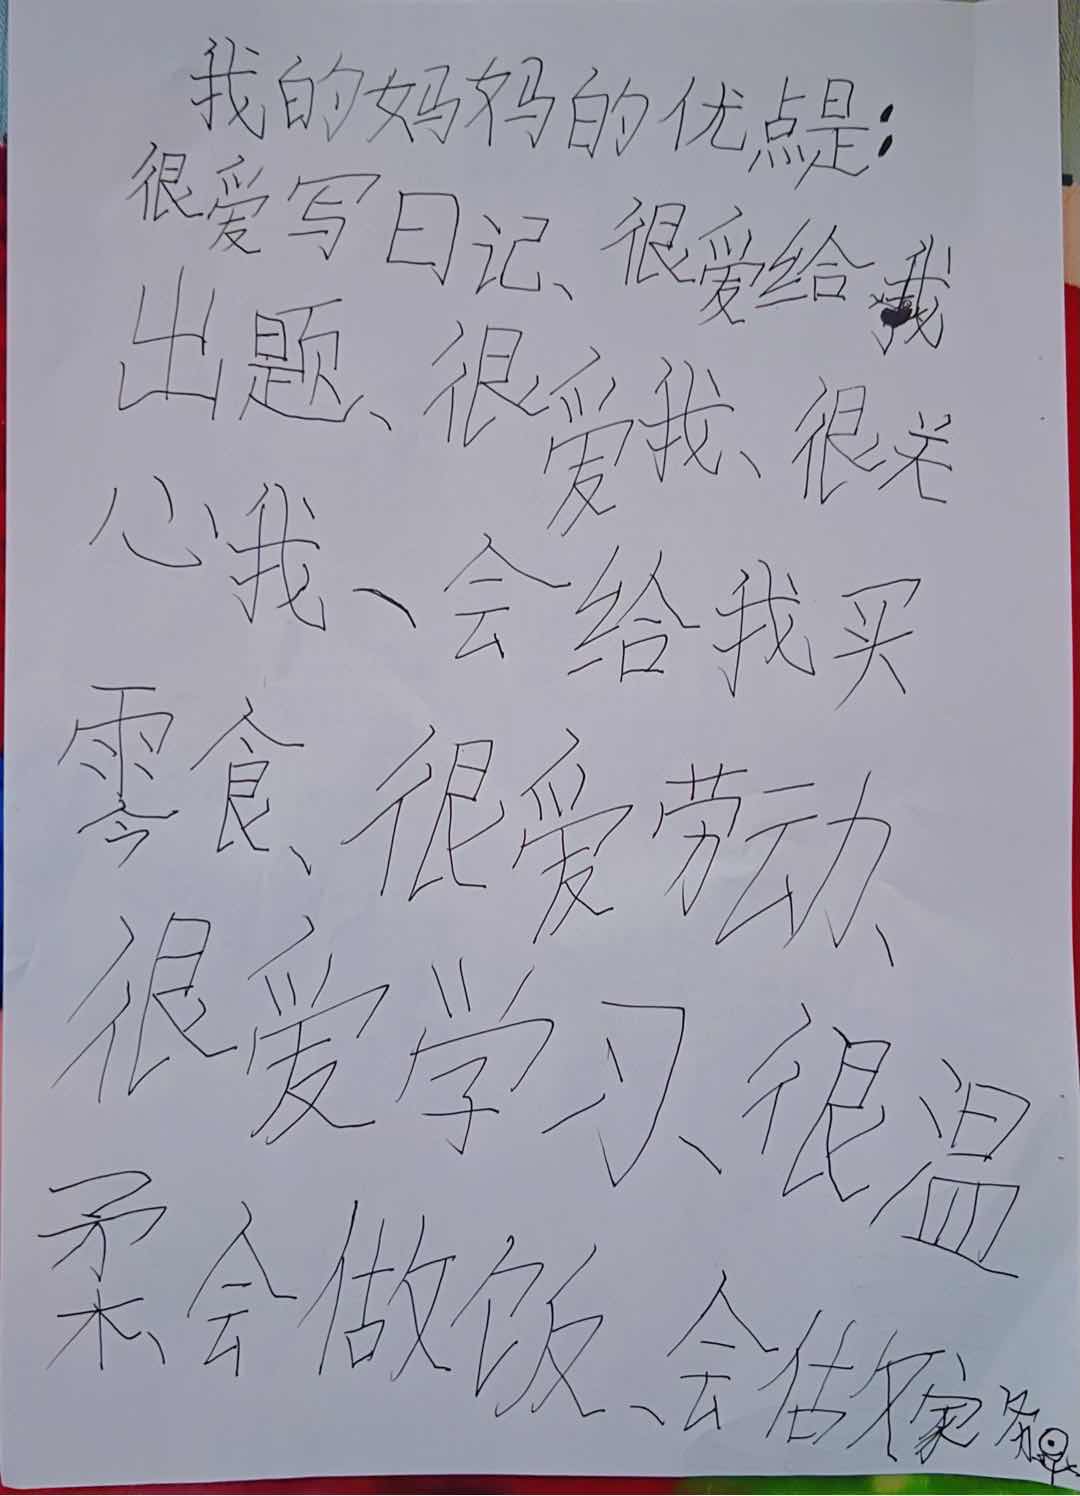 我的妈妈的优点是：
很爱写日记、很爱给我
出题、很爱我、很关
心我、会给我买
零食、很爱劳动、
很爱学习、很温
柔、会做饭、会做家务